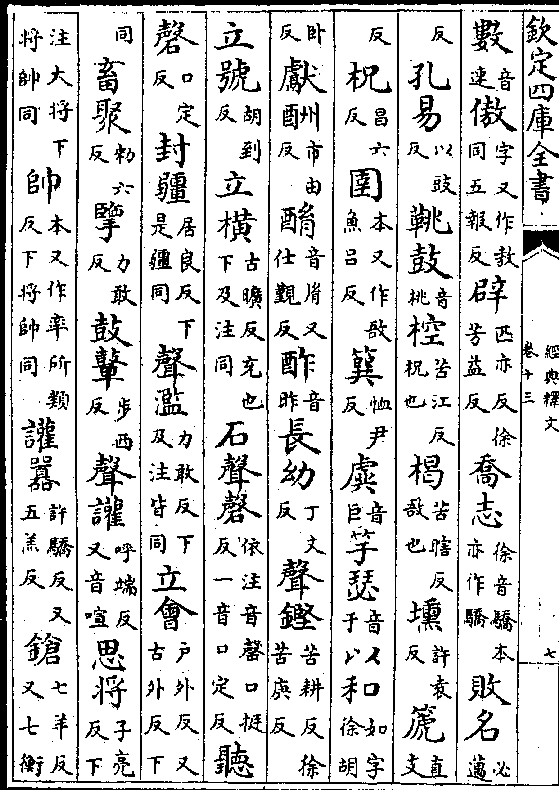 欽定四庫全書
經典釋文
卷十三
七
數音速傲字又作敖同五報反辟匹亦反徐芳益反喬志徐音驕本亦作驕敗名必邁
反孔易以豉反鞉鼓音桃椌苦江反柷也楬苦瞎反敔也壎許袁反篪直支
反柷昌六反圉本又作敔魚呂反簨恤尹反虡音巨竽瑟音于以和如字徐胡
臥反獻酬市由反酳音胤又仕覲反酢音昨長幼丁丈反聲鏗苦耕反徐苦庚反
立號胡到反立橫古曠反充也下及注同石聲磬依注音罄口挺反一音口定反聽
磬口定反封疆居良反下是疆同聲濫力敢反下及注皆同立會戶外反又古外反下
同畜聚勑六反擥力敢反鼓鼙步西反聲讙呼端反又音喧思將子亮反下
注大將下將帥同帥本又作率所類反下將帥同讙囂許驕反又五羔反鎗七羊反又七衡